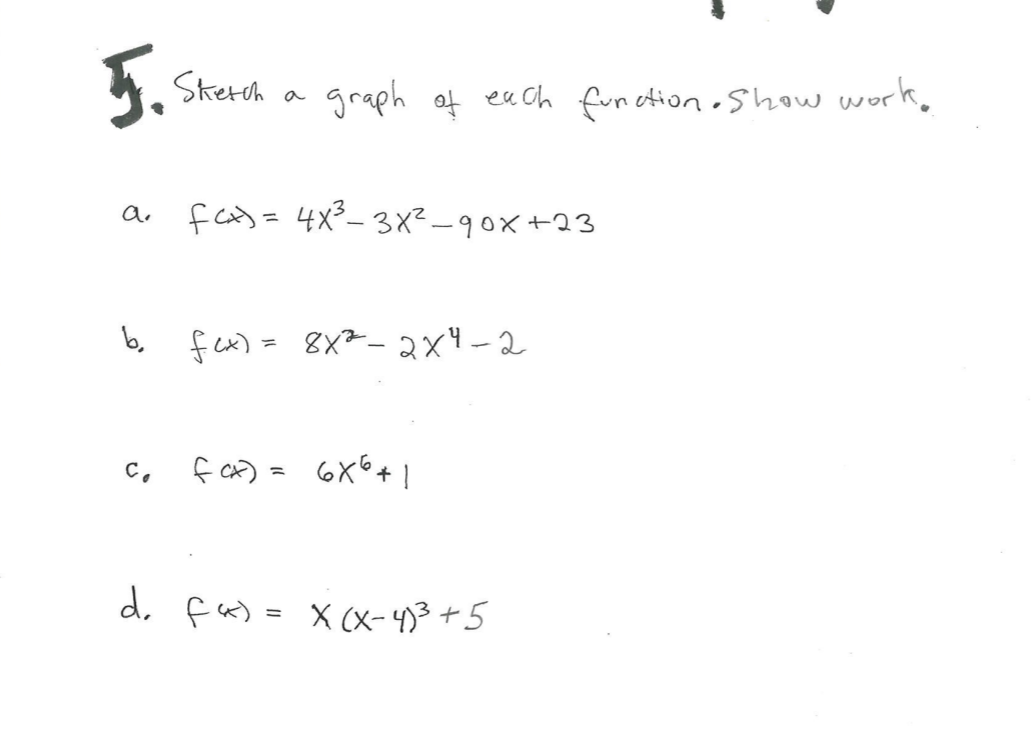 5. Sketch a graph of each function. Show work.
a. f(x) = 4x³ - 3x² - 90x + 23
b. f(x) = 8x² - 2x⁴ - 2
c. f(x) = 6x⁶ + 1
d. f(x) = x(x-4)³ + 5